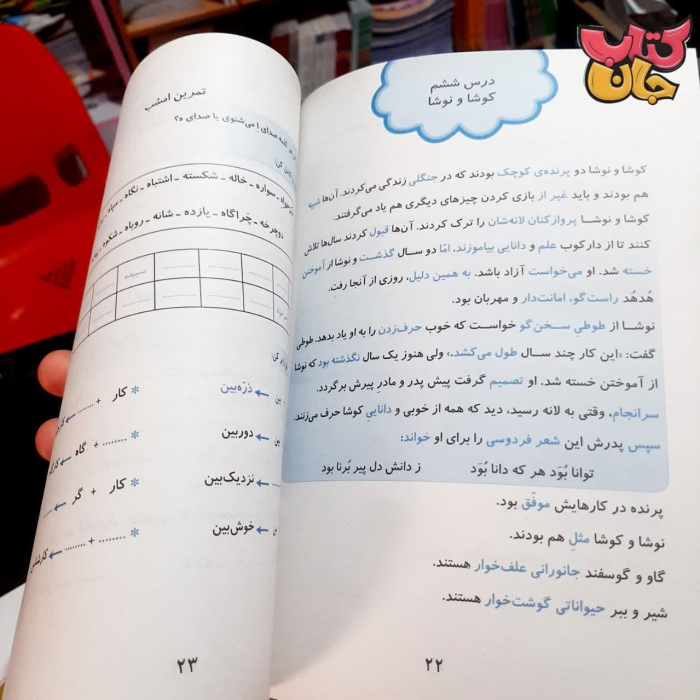 کتاب
جان
درس ششم
کوشا و نوشا
کوشا و نوشا دو پرنده‌ی کوچک بودند که در جنگلی زندگی می‌کردند. آن‌ها شبیه
هم بودند و باید غیر از بازی کردن چیزهای دیگری هم یاد می‌گرفتند.
کوشا و نوشا پروازکنان لانه‌شان را ترک کردند. آن‌ها قبول کردند سال‌ها تلاش
کنند تا از دارکوب علم و دانایی بیاموزند. امّا دو سال گذشت و نوشا از آموختن
خسته شد. او می‌خواست آزاد باشد. به همین دلیل، روزی از آنجا رفت.
هُدهُد راست‌گو، امانت‌دار و مهربان بود.
نوشا از طوطیِ سخن‌گو خواست که خوب حرف‌زدن را به او یاد بدهد. طوطی
گفت: «این کار چند سال طول می‌کشد.» ولی هنوز یک سال نگذشته بود که نوشا
از آموختن خسته شد. او تصمیم گرفت پیش پدر و مادرِ پیرش برگردد.
سرانجام، وقتی به لانه رسید، دید که همه از خوبی و داناییِ کوشا حرف می‌زنند.
سپس پدرش این شعر فردوسی را برای او خواند:
توانا بُوَد هر که دانا بُوَد ز دانش دل پیر بُرنا بود
پرنده در کارهایش موفّق بود.
نوشا و کوشا مثلِ هم بودند.
گاو و گوسفند جانورانی علف‌خوار هستند.
شیر و ببر حیواناتی گوشت‌خوار هستند.
۲۲
تمرین امشب
کلمه صدای اِ می‌شنوی یا صدای ه؟
سواره - خاله - شکسته - اشتباه - نگاه - سیاه
دوچرخه - چَراگاه - یازده - شانه - روباه - شکوه
سپیده
ذرّه‌بین * کار + ........
دوربین * ........ + گاه
نزدیک‌بین * کار + گر
خوش‌بین * ........ + ........
۲۳